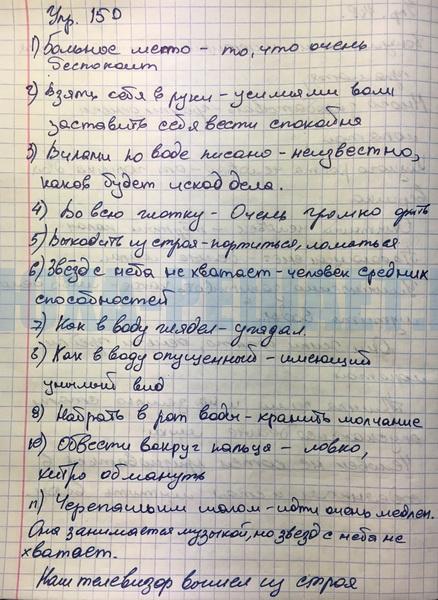 Упр. 150
1) больное место - то, что очень
беспокоит
2) Взять себя в руки - усилиями воли
заставить себя вести спокойно
3) Вилами по воде писано - неизвестно,
каков будет исход дела.
4) Во всю глотку - Очень громко орать
5) Выходить из строя - портиться, ломаться
6) Звёзд с неба не хватает - человек средних
способностей
7) Как в воду глядел - угадал.
8) Как в воду опущенный - имеющий
унылый вид
9) Набрать в рот воды - хранить молчание
10) Обвести вокруг пальца - ловко,
хитро обмануть
11) Черепашьим шагом - идти очень медлен.
Она занимается музыкой, но звезд с неба не
хватает.
Наш телевизор вышел из строя